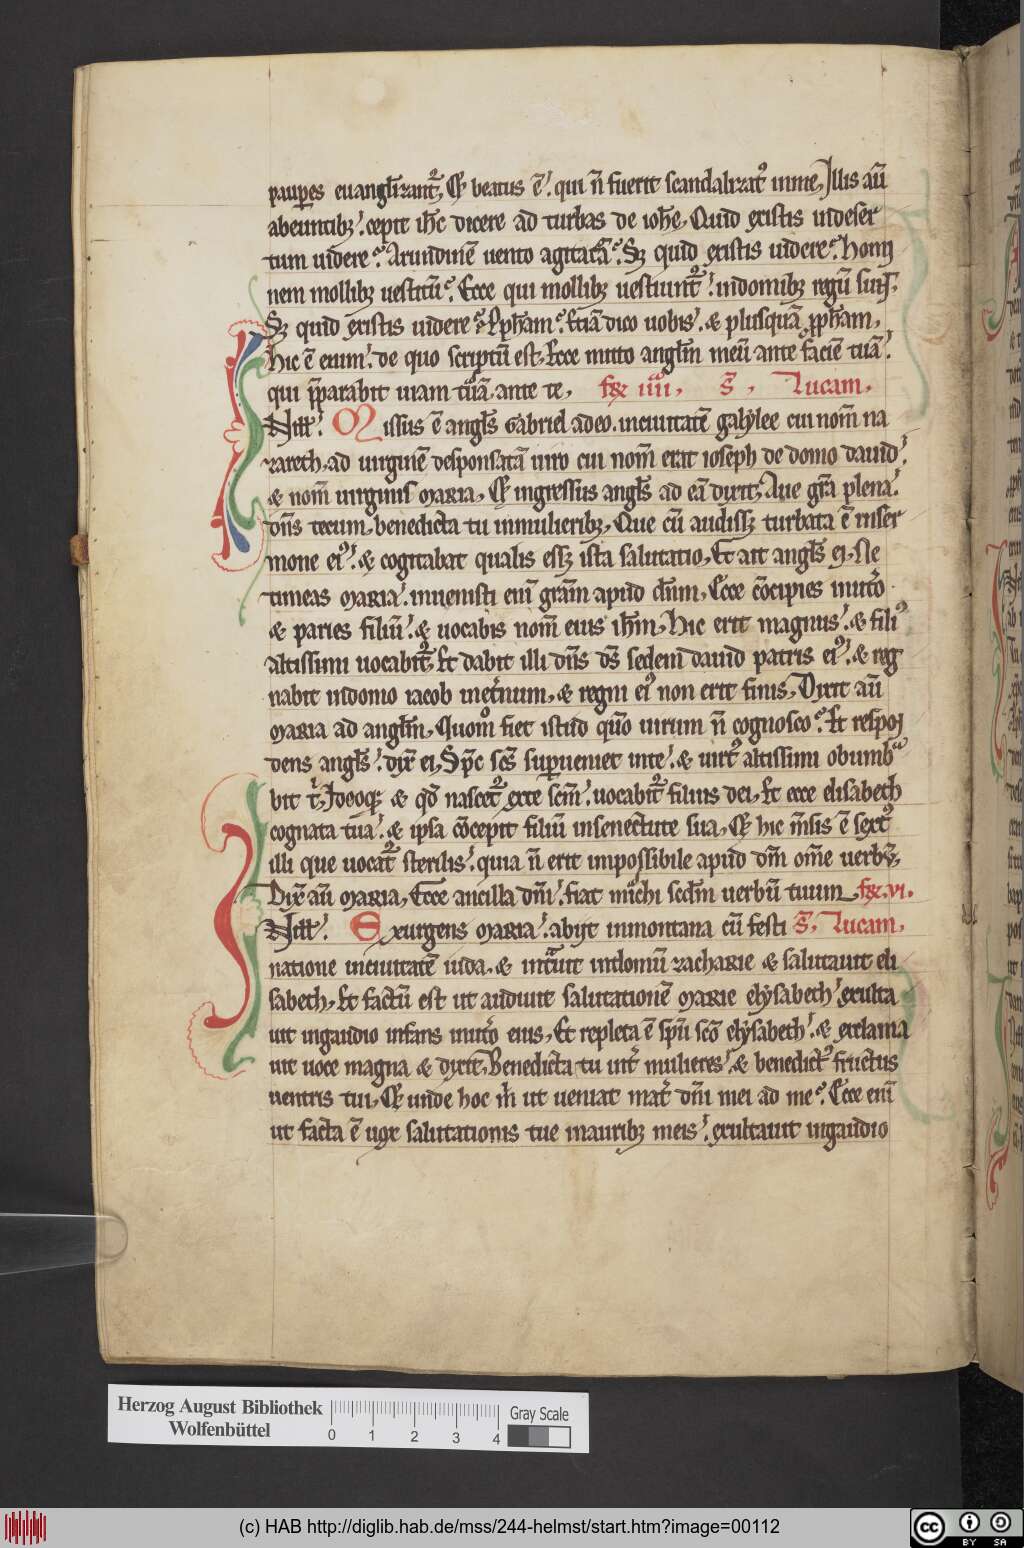 paup̲es euangl̅izant᷑, Et beatus ē. qui n̅ fuerit scandalizatꝰ in me, Illis aū
abeuntibꝫ. cepit ih̅c dicere ad turbas de ioh̅e, Quid existis uideser
tum uidere? Arundinē uento agitatā? Sꝫ quid existis uidere? homi
nem mollibꝫ uestitū? Ecce qui mollibꝫ uestiunt᷑. in domibꝫ regū sunt.
Sꝫ quid existis uidere? Pph̅am? Etiā dico uobis. & plusquā pph̅am,
Hic ē enim. de quo scriptū est, Ecce mitto angl̅m meū ante faciē tuā.
qui p̅parabit uiam tuā ante te, fer̅ iiii, s̅, Lucam,
In ill̅. Missus ē angl̅s Gabriel a deo. in ciuitatē galylee cui nom̅ na
zareth, ad uirginē desponsatā uiro cui nom̅ erat ioseph de domo dauid.
& nom̅ uirginis MARIA, Et ingressus angl̅s ad eā dixit, Aue gr̅a plena.
dn̅s tecum, benedicta tu in mulieribꝫ, Que cū audissꝫ turbata ē in ser
mone eiꝰ. & cogitabat qualis essꝫ ista salutatio, Et ait angl̅s ei, Ne
timeas MARIA. inuenisti eni̅ gr̅am apud dn̅m, Ecce cōcipies in utero
& paries filiū. & uocabis nom̅ eius ih̅m, Hic erit magnus. & filiꝰ
altissimi uocabit᷑, Et dabit illi dn̅s ds̅ sedem dauid patris eiꝰ. & reg
nabit in domo iacob in et̅num, & regni eiꝰ non erit finis, Dixit aū
MARIA ad angl̅m, Quom̊ fiet istud qūo uirum n̅ cognosco? Et respon
dens angl̅s. dix̅ ei, Sp̅c sc̅s sup̲ueniet in te. & uirtꝰ altissimi obumbᵃ
bit t̅, Ideoqꝫ & qd̅ nascet᷑ ex te sc̅m. uocabit᷑ filius dei, Et ecce elisabeth
cognata tua. & ipsa cōcepit filiū in senectute sua, Et hic m̅sis ē sextꝰ
illi que uocat᷑ sterilis. quia n̅ erit impossibile apud dm̅ om̅e uerbū,
Dix̅ aū MARIA, Ecce ancilla dn̅i. fiat michi scd̅m uerbū tuum fer̅. vi.
In ill̅. Exurgens MARIA. abijt in montana cū festi s̅, Lucam,
natione in ciuitatē iuda, & intᵃuit in domū zacharie & salutauit eli
sabeth, Et factū est ut audiuit salutationē MARIE elysabeth. exulta
uit in gaudio infans in utero eius, Et repleta ē spū sc̅o elysabeth. & exclama
uit uoce magna & dixit, Benedicta tu int̅ mulieres. & benedictꝰ fructus
uentris tui, Et unde hoc m̅ ut ueniat mat̅ dn̅i mei ad me? Ecce eni̅
ut facta ē uox salutationis tue in auribꝫ meis. exultauit in gaudio
Herzog August Bibliothek
Wolfenbüttel
0 1 2 3 4
Gray Scale
(c) HAB http://diglib.hab.de/mss/244-helmst/start.htm?image=00112
cc BY SA